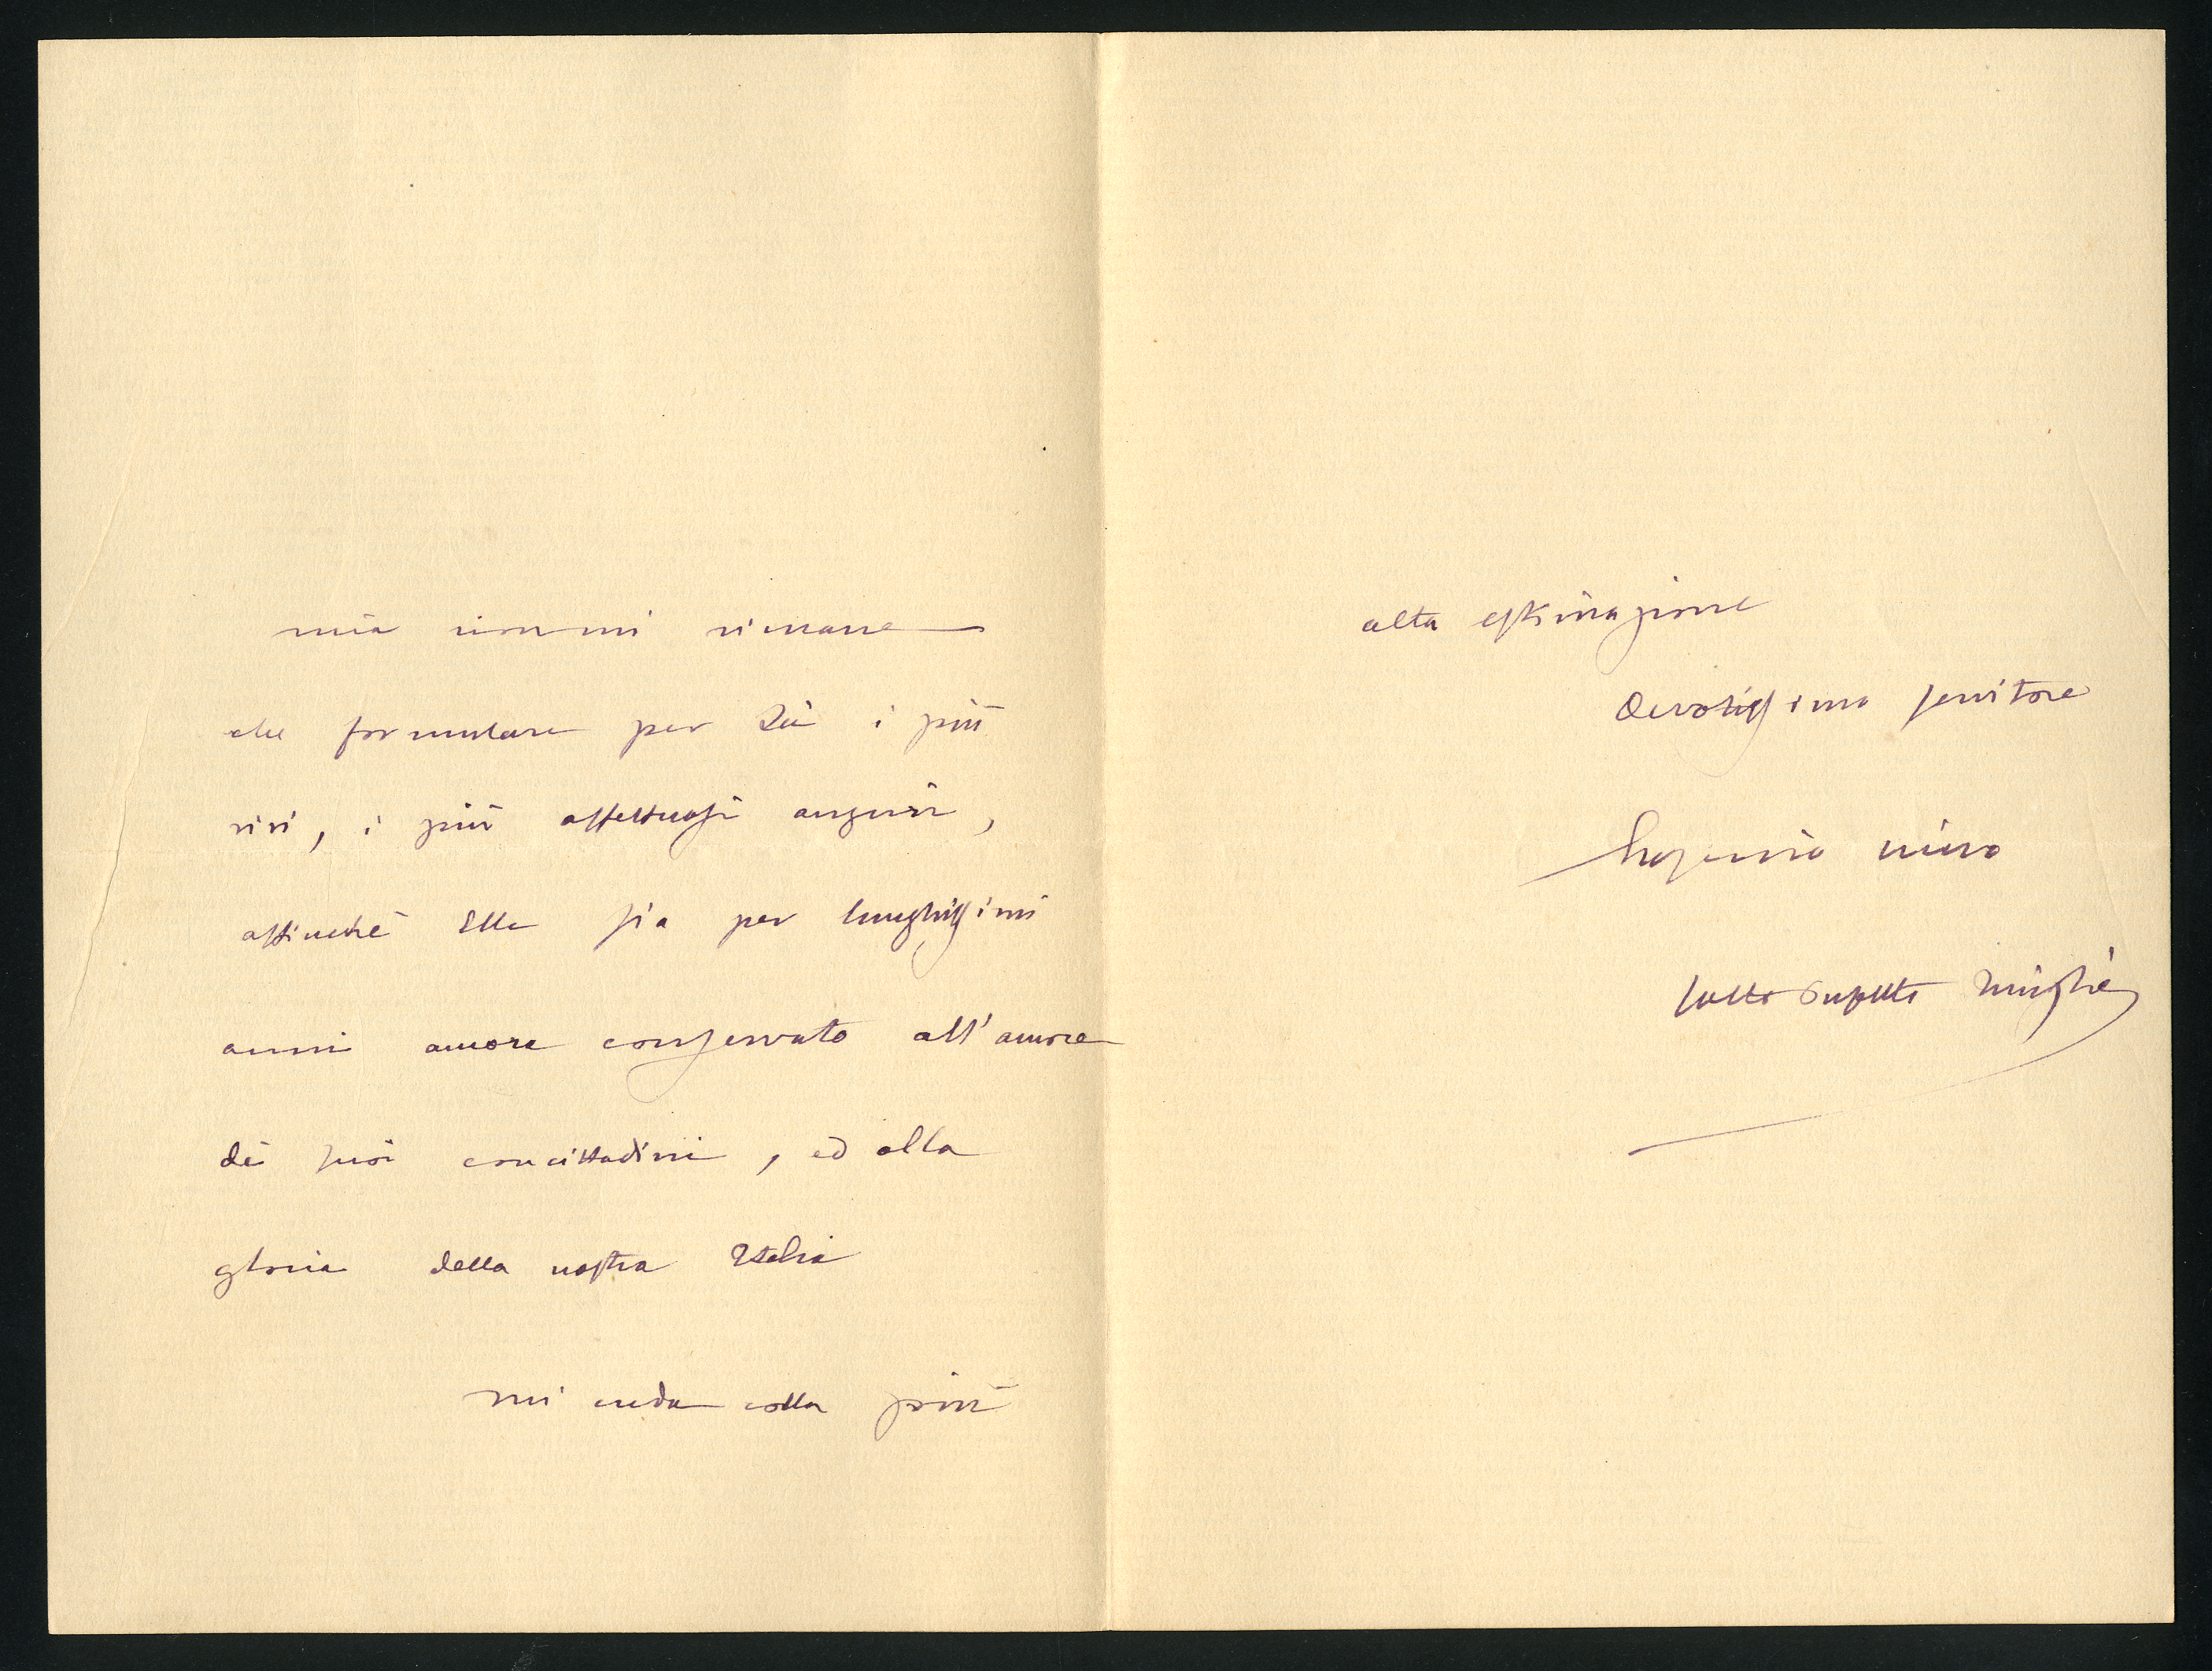 mia non mi rimane
che formulare per Lei i più
vivi, i più affettuosi auguri,
affinché Ella sia per lunghissimi
anni ancora conservato all'amore
dei suoi concittadini, ed alla
gloria della nostra Italia
mi creda colla più
alta estimazione
Devotissimo servitore